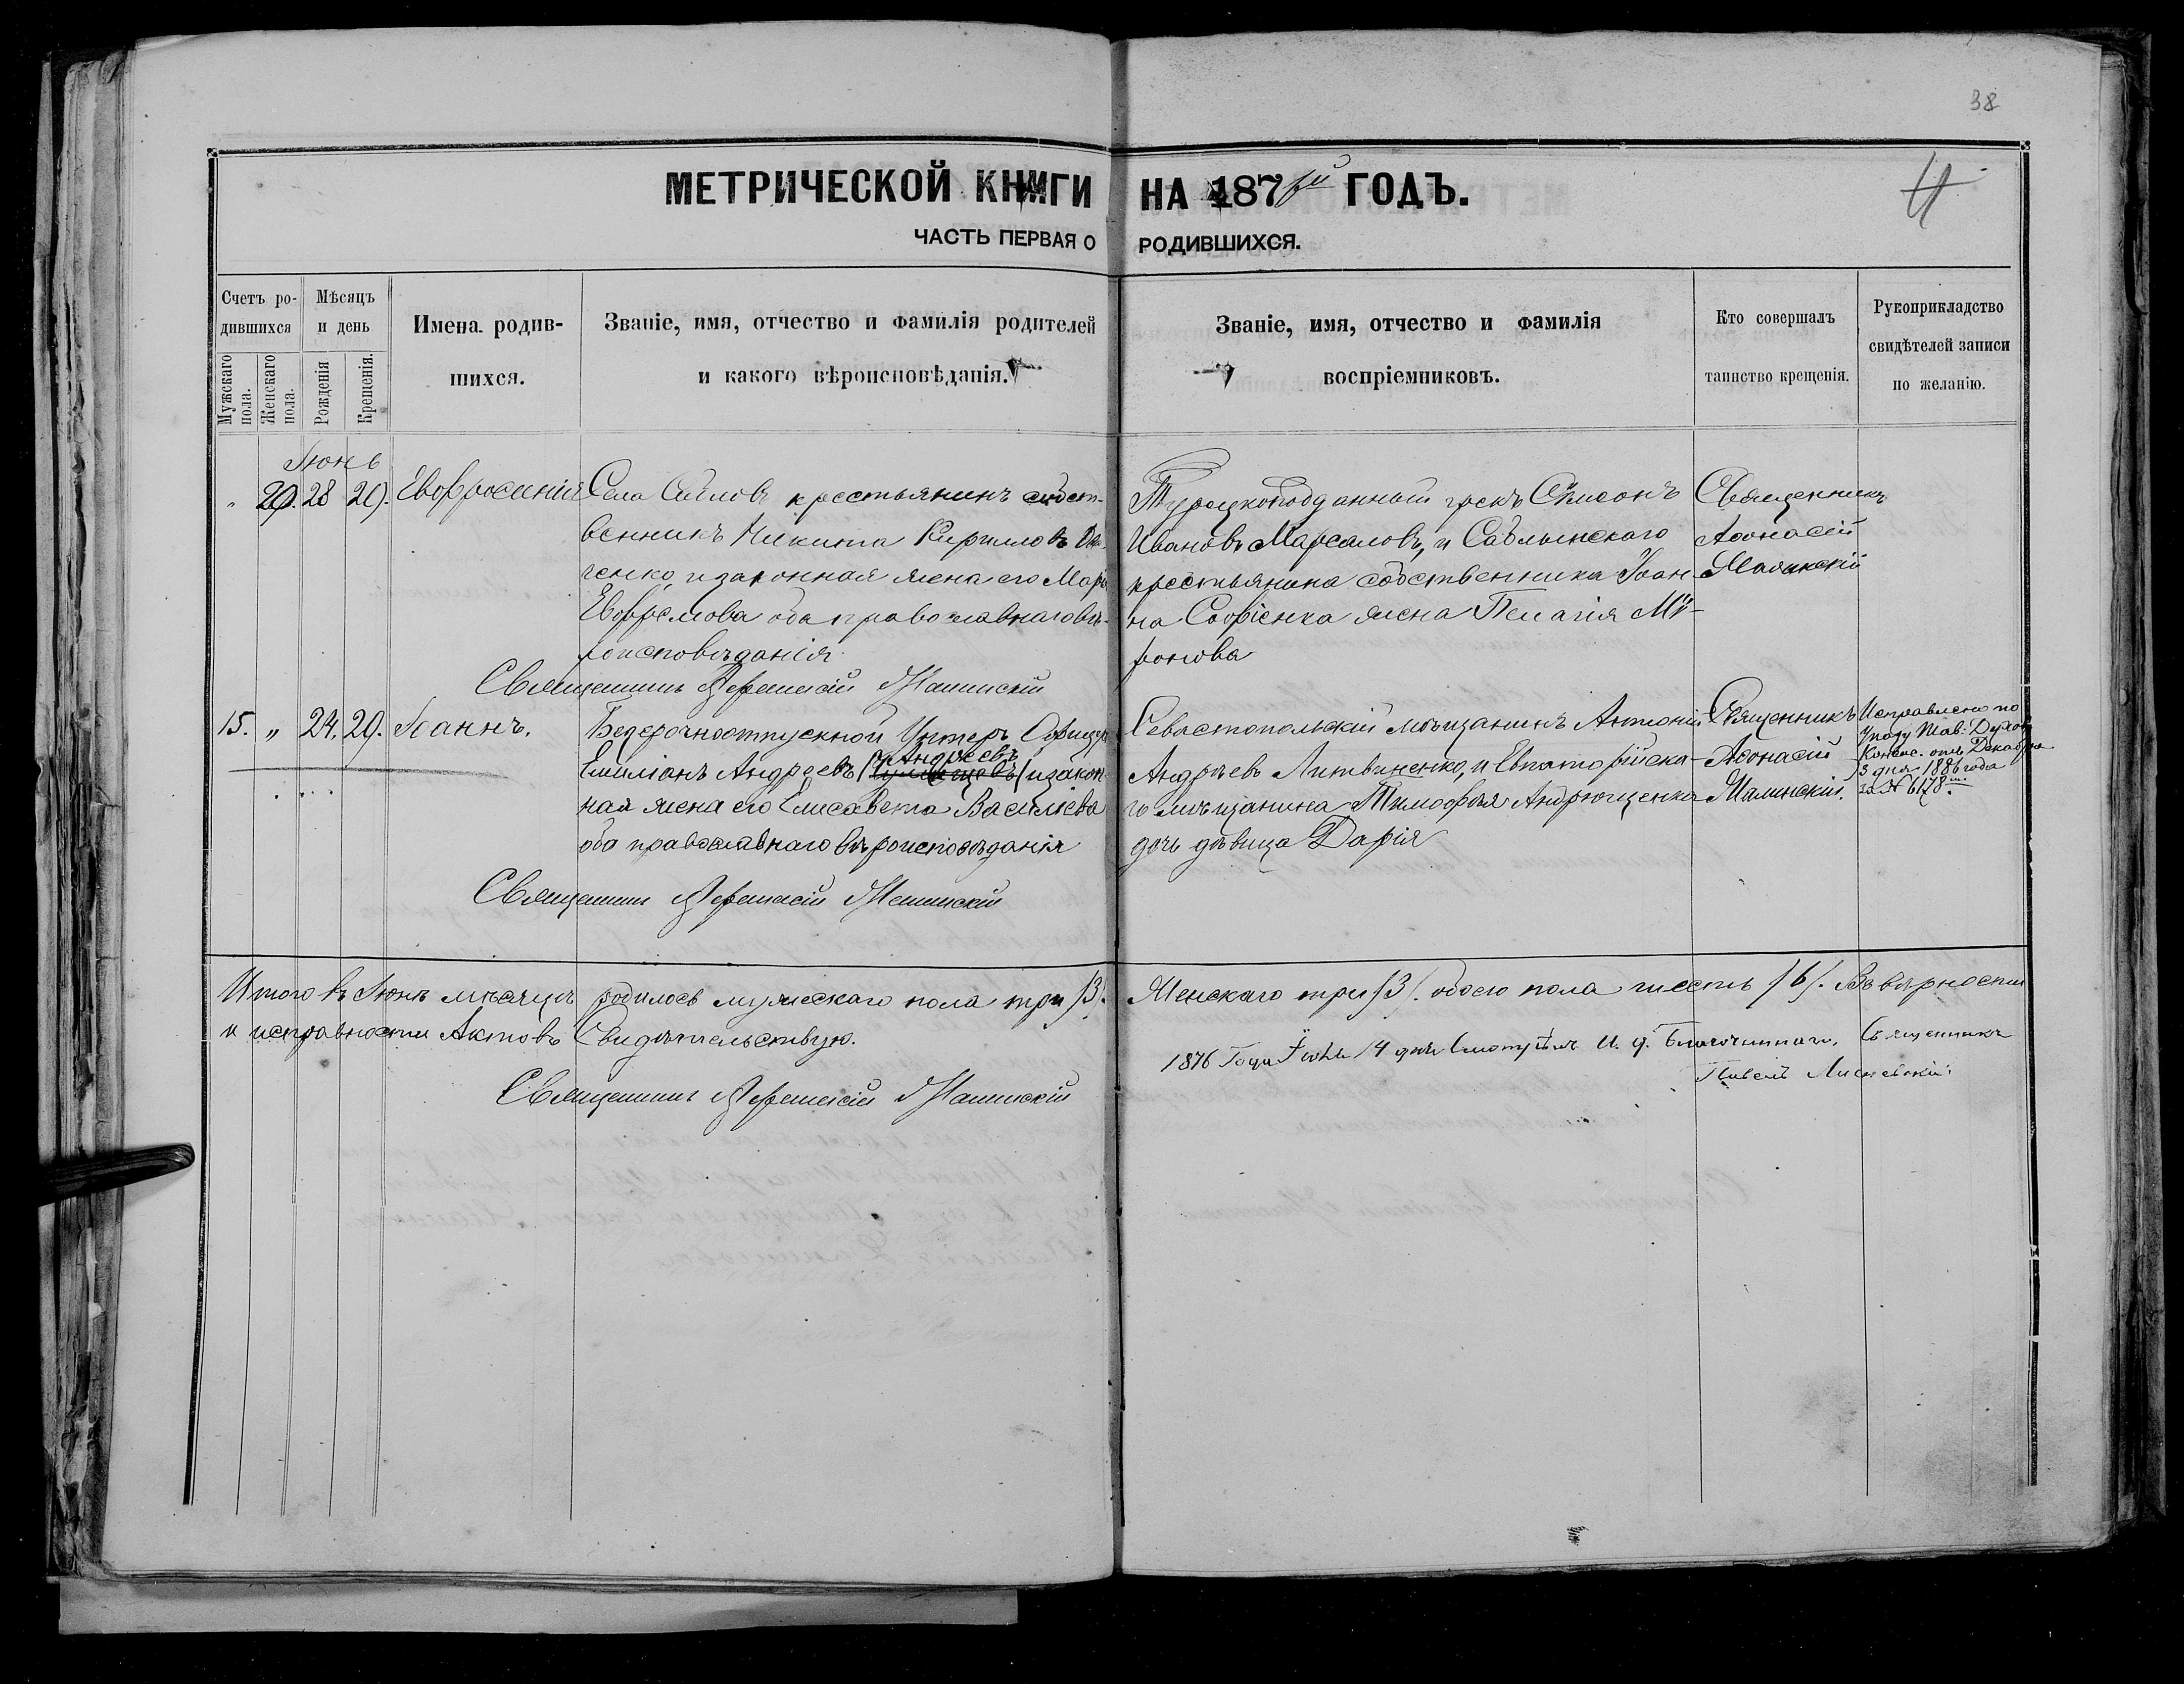 38
МЕТРИЧЕСКОЙ КНИГИ НА 187 ГОДЪ.
ЧАСТЬ ПЕРВАЯ О РОДИВШИХСЯ.
Счетъ ро-
дившихся
Мужскаго пола.
Женскаго пола.
Мѣсяцъ
и день
Рожденія
Крещенія.
Имена родив-
шихся.
Званіе, имя, отчество и фамилія родителей
и какого вѣроисповѣданія.
Званіе, имя, отчество и фамилія
воспріемниковъ.
Кто совершалъ
таинство крещенія.
Рукоприкладство
свидѣтелей записи
по желанію.
Іюнь
" 20. 28 29. Евфросинія
Села Сабловъ крестьянинъ собст-
венникъ Никита Кирилловъ
ченко, и законная жена его Марѳа
Ефремова оба православнаго вѣ-
роисповѣданія.
Турецкоподданный грекъ Сѵмеонъ
Ивановъ Марсаловъ, и Саблынскаго
крестьянина собственника Іоан-
на Софіенка жена Пелагія Мѵ-
ронова
Священникъ
Аѳонасій
Малинскій
Священникъ Аѳанасій Малинскій
15. " 24. 29. Іоаннъ.
Безсрочноотпускной Унтеръ Офицеръ
Андреевъ
Емиліанъ Андреевъ и закон-
ная жена его Елисавета Васильева
оба православнаго вѣроисповѣданія
Севастопольскій мѣщанинъ Антоній
Андреевъ Литвиненко, и Евпаторійска-
го мѣщанина Тимоѳея Андрющенка
дочь дѣвица Дарія
Священникъ
Аѳонасій
Малинскій.
Исправлено по
указу Тав: Духов
Консис. отъ Декабря
3 дня 1886 года
за № 6178.
Священникъ Аѳанасій Малинскій
Итого въ Іюнѣ мѣсяцѣ родилось мужескаго пола три /3/. Женскаго три /3/. обоего пола шесть /6/. Въ вѣрности
и исправности Актовъ Свидѣтельствую.
Священникъ Аѳанасій Малинскій
1876 Года Іюля 14 дня Смотрѣлъ И. д. Благочиннаго, Священникъ
Павелъ